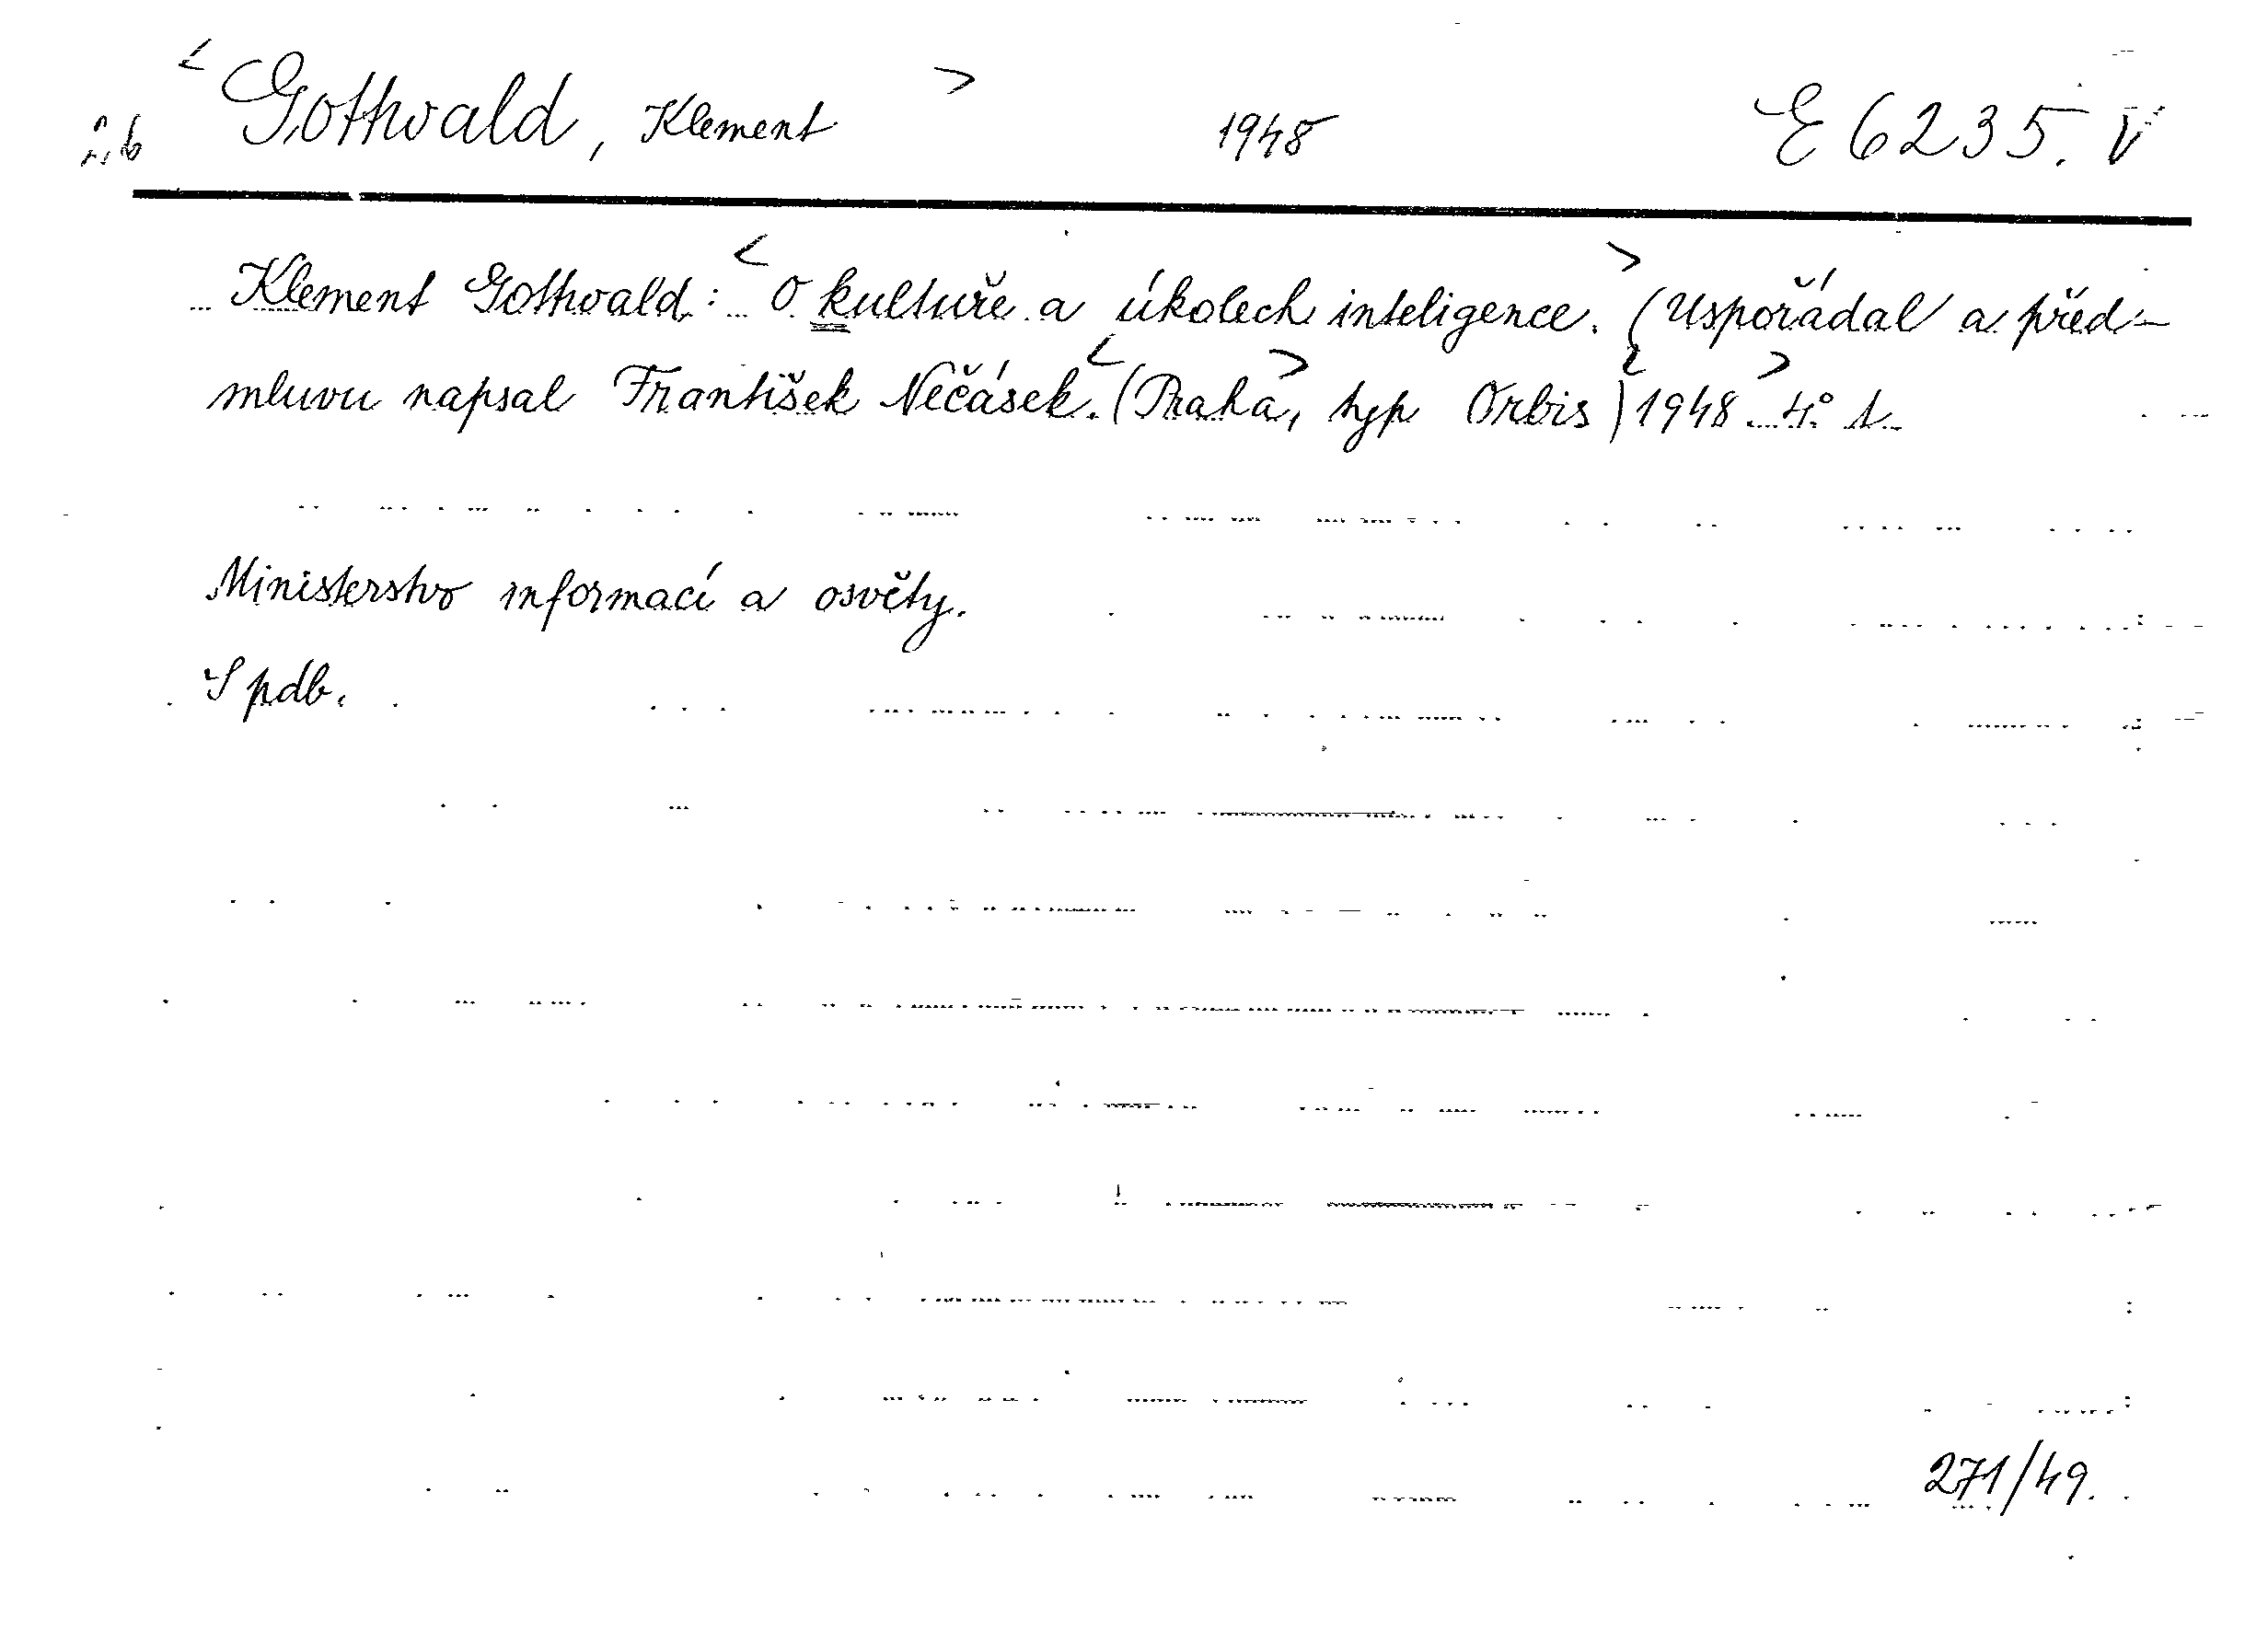 <Gottwald, Klement> 1948 E 6235. V
Klement Gottwald: <O kultuře a úkolech inteligence.> (Uspořádal a před-
mluvu napsal František Nečásek.) <(Praha>, typ Orbis) <1948>. 4° 1.
Ministerstvo informací a osvěty.
S pdb.
271/49.